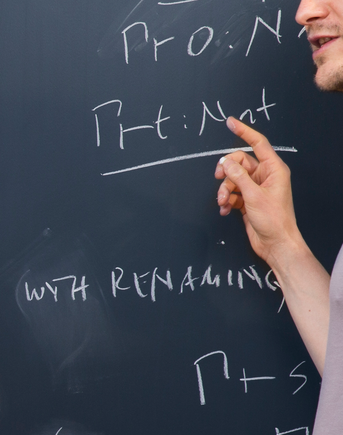 Γ ⊢ O : N
Γ ⊢ t : Nat
WITH RENAMING
Γ ⊢ s